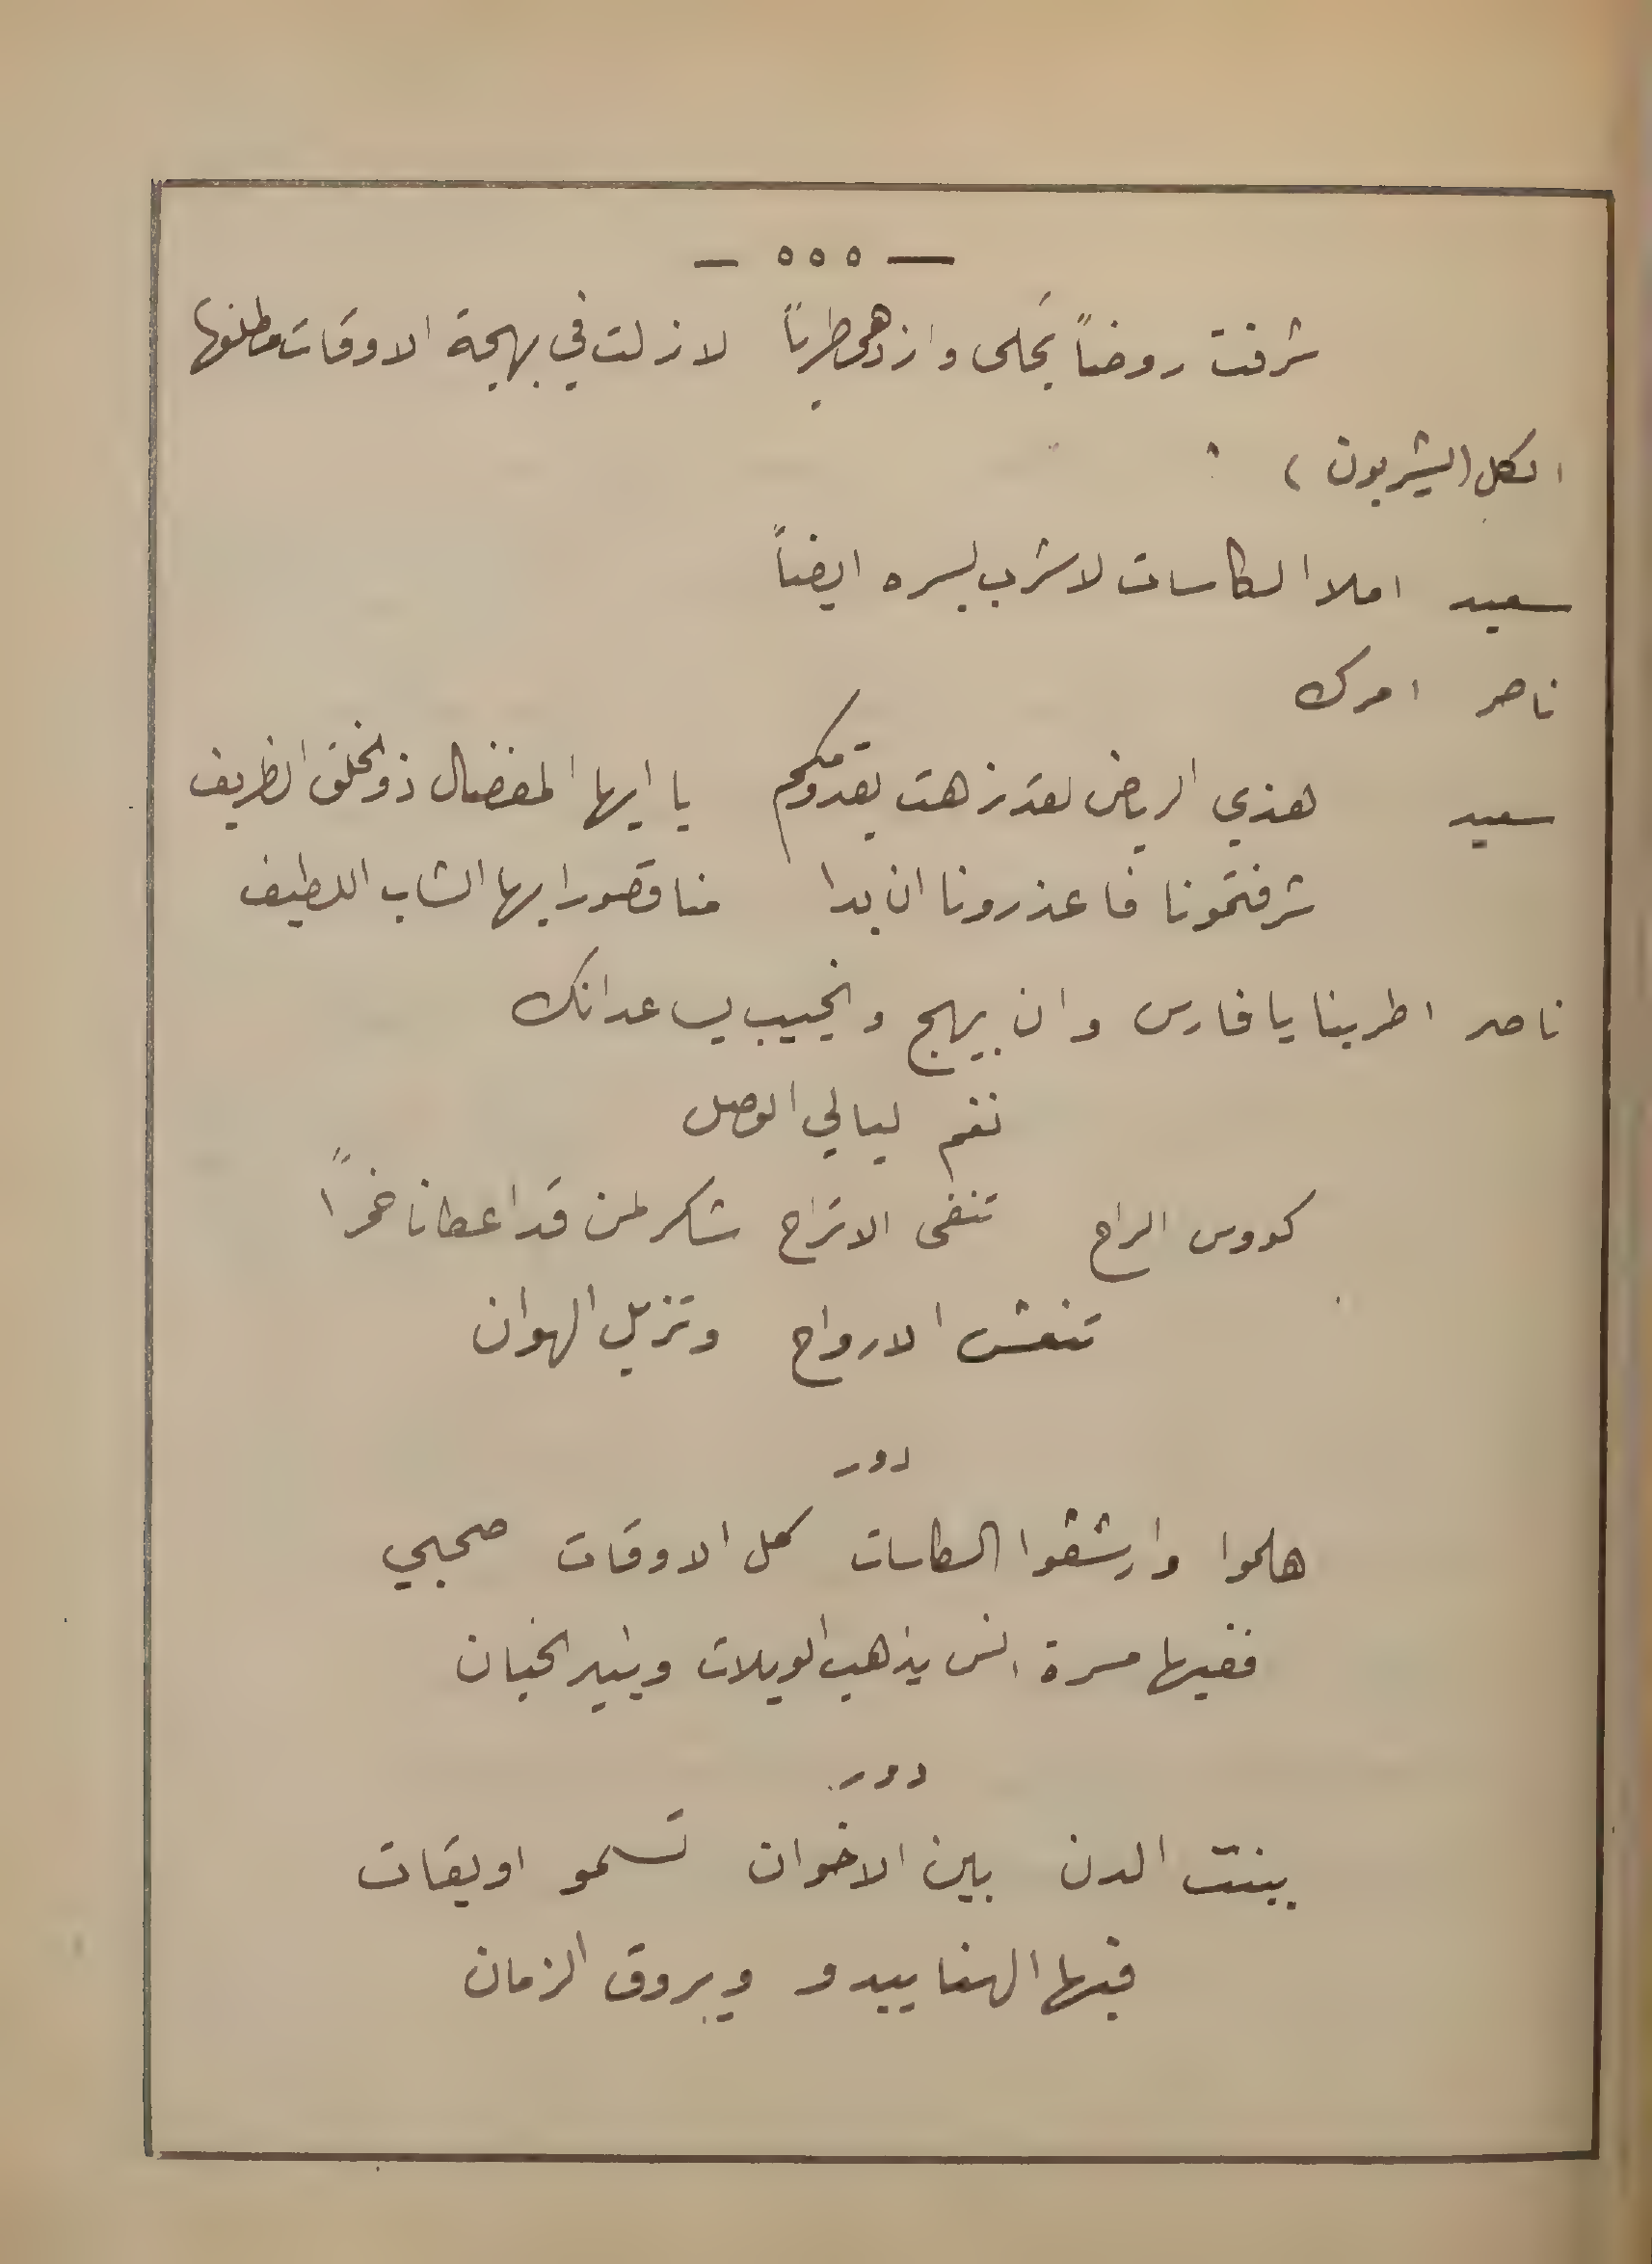 — ٥٥٥ —
شرفت روضاً تحلى وازدهى طرباً لا زلت في بهجة الاوقات
الكل (يشربون) :
سعيد املا الكاسات لاشرب بسره ايضاً
ناصر امرك
سعيد هذي الرياض لقد زهت بقدومكم يا ايها المفضال ذو الخلق الظريف
شرفتمونا فاعذرونا ان بدا منا قصور ايها الشاب اللطيف
ناصر اطربنا يا فارس وان بهج ونجيب يساعدانك
نغم ليالي الوصل
كووس الراح تنفى الاتراح شاكر لمن قد اعطانا خمراً
تنعش الارواح وتزيل الهوان
دور
هلموا وارشفوا الكاسات كل الاوقات صحبي
ففيها مسرة انس يذهب الويلات وينير الجنان
دور
ببنت الدن بين الاخوان تسمو اويقات
فيها الهنا يبدو ويروق الزمان